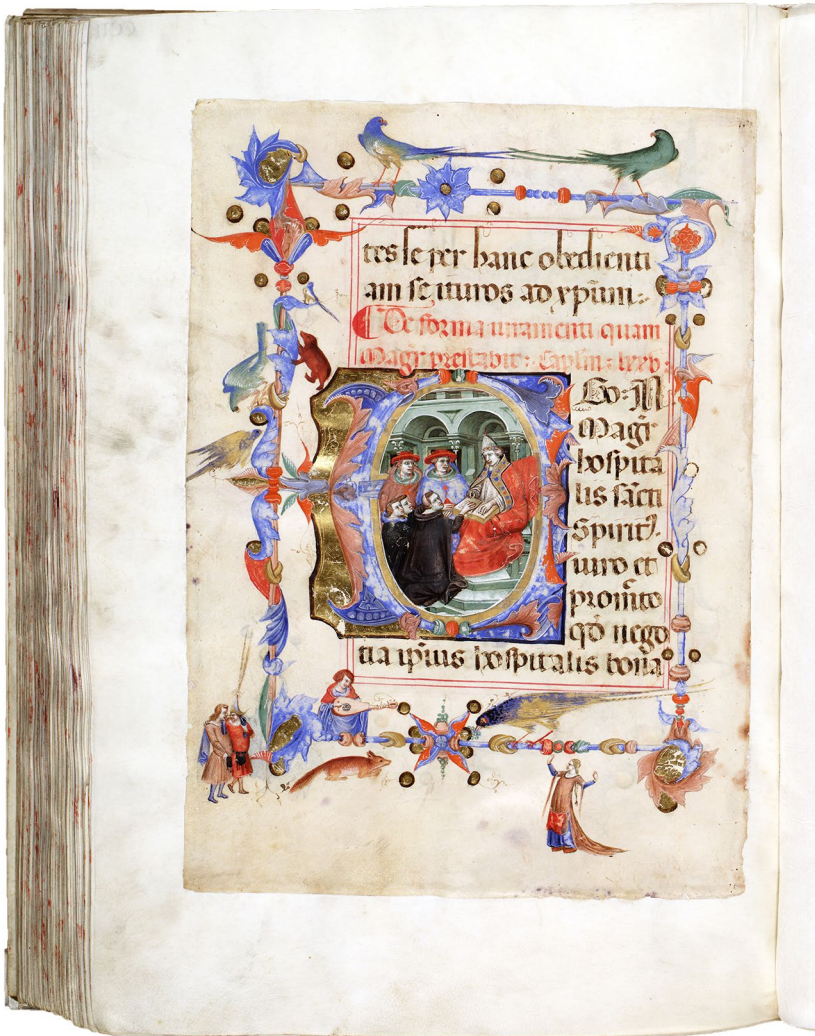 tes se per hanc obedienti
am se ituros ad xp̄um:
De forma iuramenti quam
Magr̄ prestabit: Caplm̄: lxxv:
Ego: N
Magr̄
hospita
lis sācti
Spirit9.
iuro et
promito
qd̄ nego
tia ip̄ius hospitalis bona